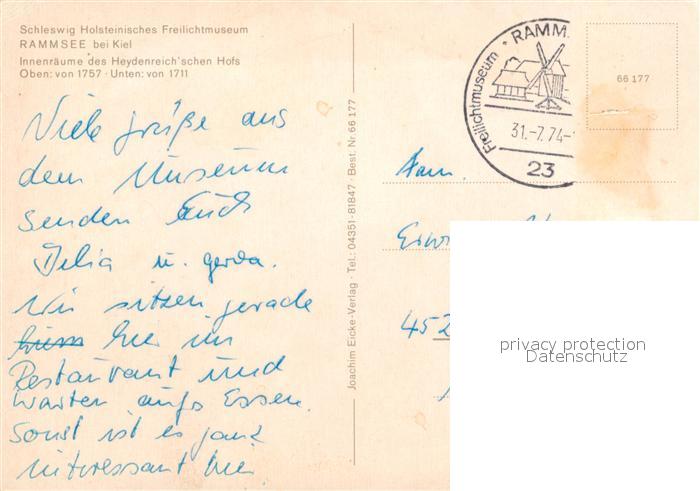 Schleswig Holsteinisches Freilichtmuseum
RAMMSEE bei Kiel
Innenräume des Heydenreich'schen Hofs
Oben: von 1757 · Unten: von 1711
Viele Grüße aus
dem Museum
senden Euch
Delia u. Gerda.
Wir sitzen gerade
hier im
Restaurant und
warten aufs Essen.
Sonst ist es ganz
interessant hier.
Joachim Eicke-Verlag · Tel.: 04351-81847 · Best. Nr. 66 177
Freilichtmuseum · RAMM
31.-7.74-
23
66 177
Fam.
Erwi
452
privacy protection
Datenschutz